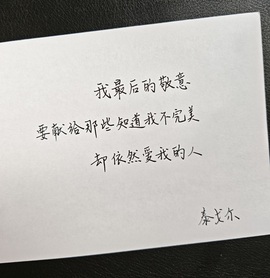 我最后的敬意
要献给那些知道我不完美
却依然爱我的人
泰戈尔